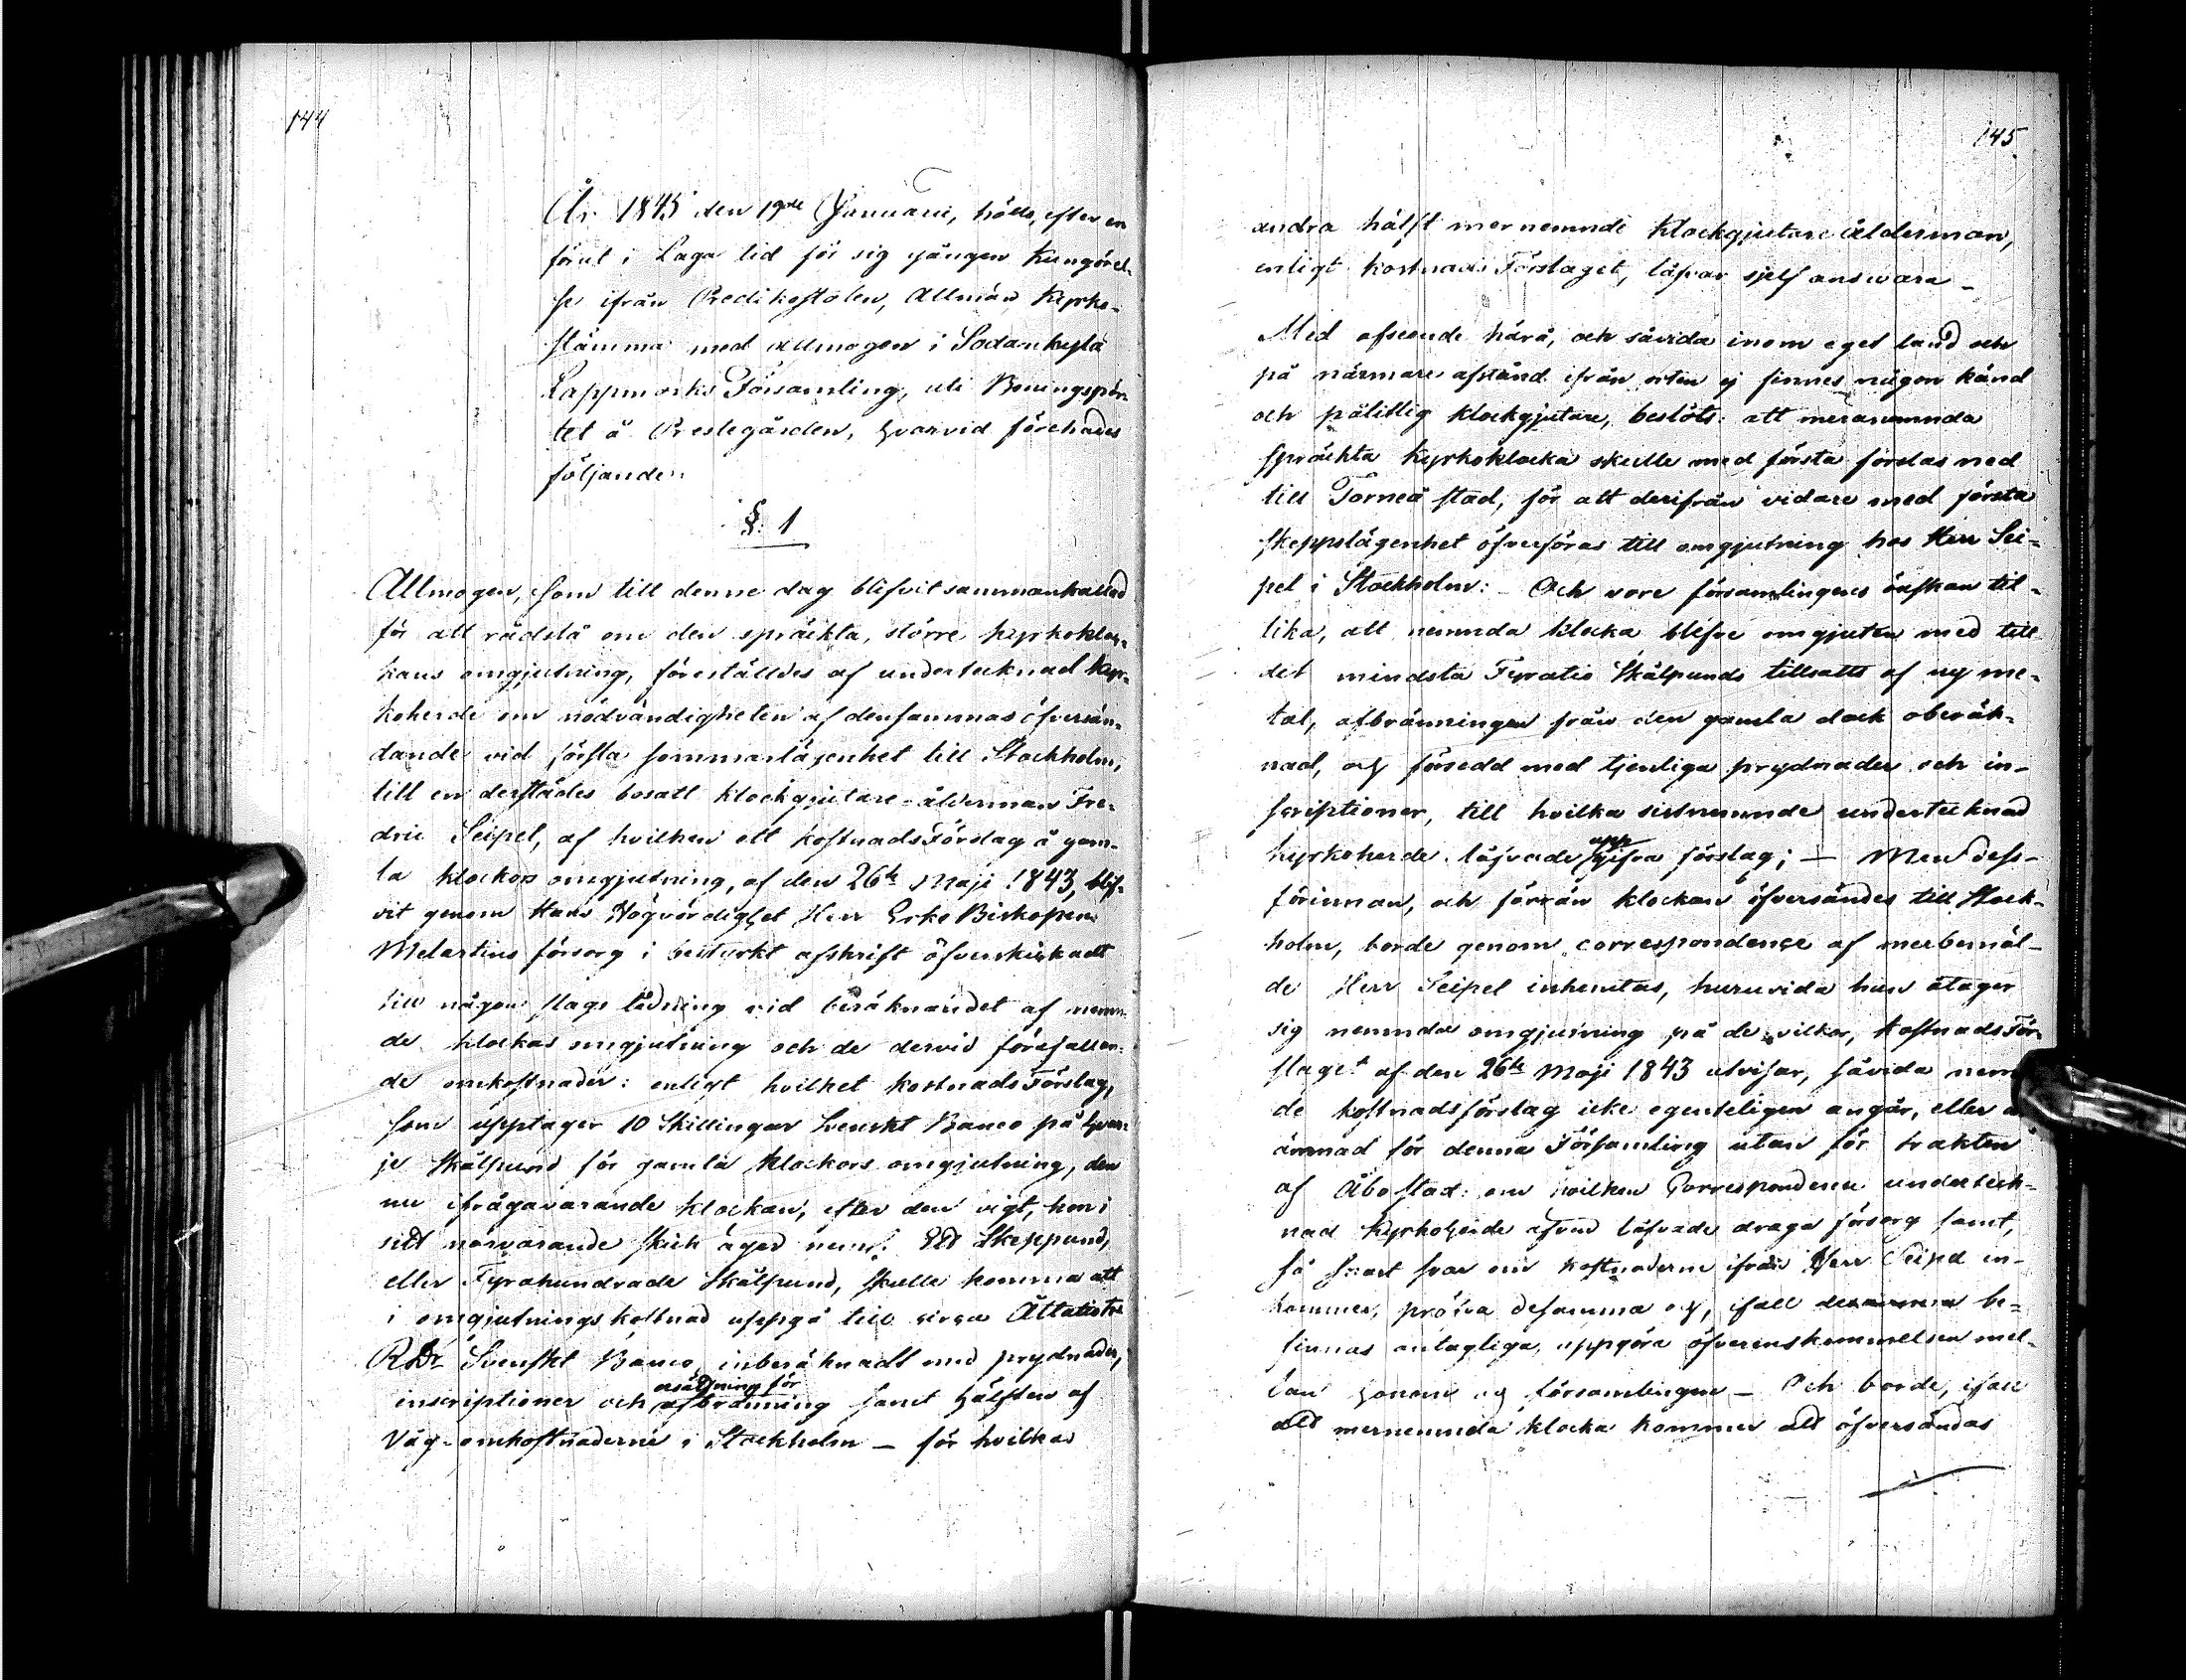 144
År 1845 den 19de Januarii, hölls, efter en
förut i Laga tid för sig gången Kungörel-
se ifrån Predikostolen, Allmän Kyrko-
stämma med allmogen i Sodankylä
Lappmarks Församling, uti Boningspör-
tet å Prestegården, hvarvid förehades
följande:
§. 1
Allmogen, som till denne dag blifvit sammankallad
för att rådslå om den spräckta, större kyrkokloc-
kans omgjutning, föreställdes af undertecknad kyr-
koherde om nödvändigheten af densammas öfversän-
dande vid första sommarlägenhet till Stockholm,
till en derstädes bosatt klockgjutare-ålderman Fre-
dric Seipel, af hvilken ett kostnads Förslag å gam-
la klockors omgjutning, af den 26te Maji 1843, blif-
vit genom Hans Högvördighet Herr Erke Biskopen
Melartins försorg i bestyrkt afskrift öfverskickadt
till någon slags ledning vid beräknandet af nemn-
de klockas omgjutning och de dervid förefallan-
de omkostnader: enligt hvilket kostnads Förslag,
som upptager 10 Skillingar Svenskt Banco på hvar-
je Skålpund för gamla klockors omgjutning, den
nu ifrågavarande klockan, efter den vigt, hon i
sitt närvarande skick äger neml. Ett Skeppund,
eller Fyrahundrade Skålpund, skulle komma att
i omgjutningskostnad uppgå till circa Åttatio
RDr Svenskt Banco, inberäknadt med prydnader,
ersättning för
inscriptioner och afbränning samt hälften af
Våg-omkostnaderne i Stockholm – för hvilkas
145
andra hälft mernemnde Klockgjutare Ålderman,
enligt kostnads Förslaget, låfvar sjelf ansvara –
Med afseende härå, och såvida inom eget land och
på närmare afstånd ifrån orten ej finnes någon känd
och pålitlig klockgjutare, beslöts: att meranemnda
spräckta Kyrkoklocka skulle med första forslas ned
till Torneå stad, för att derifrån vidare med första
skeppslägenhet öfverföras till omgjutning hos Herr Sei-
pel i Stockholm: – Och vore församlingens önskan til-
lika, att nemnda klocka blefve omgjuten med till
det mindsta Fyratio Skålpunds tillsatts af ny me-
tal, afbränningen från den gamla dock oberäk-
nad, och försedd med tjenliga prydnader och in-
scriptioner, till hvilka sistnemnde undertecknad
upp
kyrkoherde låfvade gifva förslag; – Men dess-
förinnan, och förrän klockan öfversändes till Stock-
holm, borde genom correspondence af merbemäl-
de Herr Seipel inhemtas, huruvida han åtager
sig nemnda omgjutning på de vilkor, kostnads För-
slaget af den 26te Maji 1843 utvisar, såvida nemn-
de kostnadsförslag icke egenteligen angår, eller
ämnad för denna Församling utan för trakten
af Åbo stad: om hvilken Correspondence underteck-
nad Kyrkoherde äfven låfvade draga försorg samt,
så snart svar om kostnaderne ifrån Herr Seipel in-
kommer, pröfva desamma och, ifall desamma be-
finnas antagliga, uppgöra öfverenskommelsen mel-
lan honom och församlingen – Och borde, ifall
att mernemnda klocka kommer att öfversändas